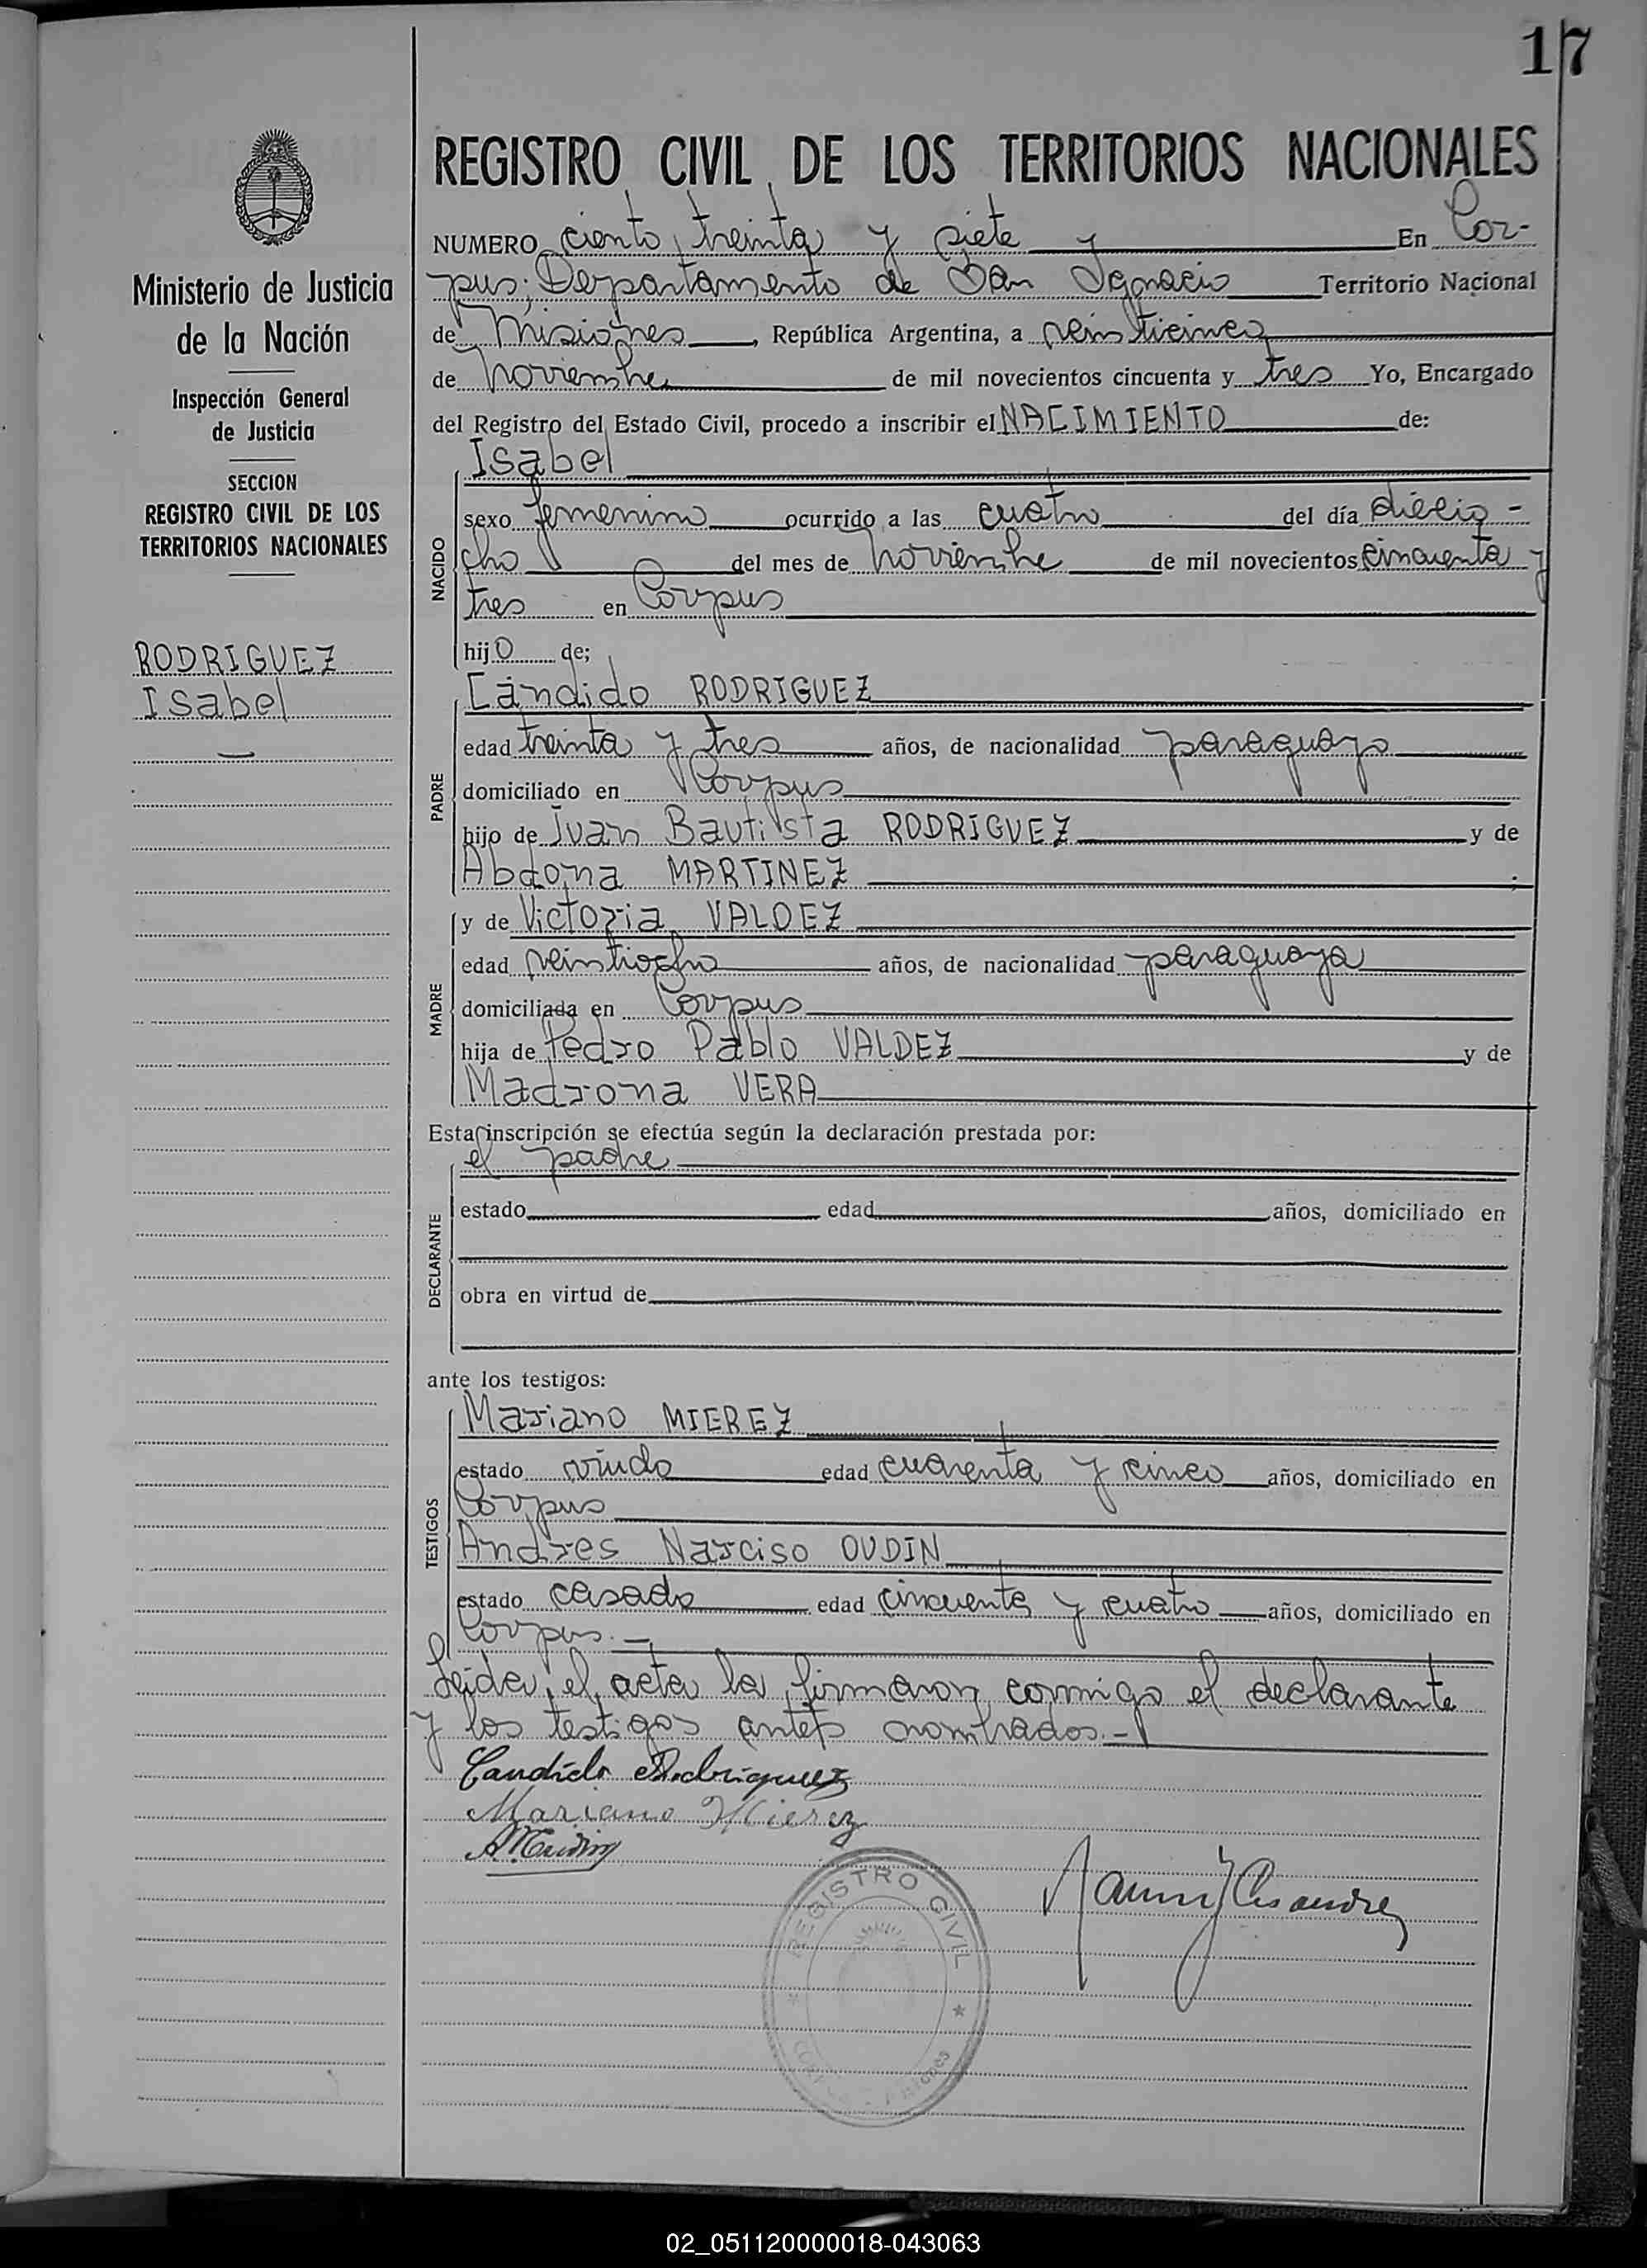 17
REGISTRO CIVIL DE LOS TERRITORIOS NACIONALES
Ministerio de Justicia
de la Nación
Inspección General
de Justicia
SECCION
REGISTRO CIVIL DE LOS
TERRITORIOS NACIONALES
RODRIGUEZ
Isabel
NUMERO ciento treinta y siete y En Cor-
pus; Departamento de San Ignacio Territorio Nacional
de Misiones, República Argentina, a veinticinco
de noviembre de mil novecientos cincuenta y tres Yo, Encargado
del Registro del Estado Civil, procedo a inscribir el NACIMIENTO de:
NACIDO
Isabel
sexo femenino ocurrido a las cuatro del día diecio-
cho del mes de noviembre de mil novecientos cincuenta y
tres en Corpus
hijo de;
PADRE
Cándido RODRIGUEZ
edad treinta y tres años, de nacionalidad paraguayo
domiciliado en Corpus
hijo de Juan Bautista RODRIGUEZ y de
Abdona MARTINEZ ;
MADRE
y de Victoria VALDEZ
edad veintiocho años, de nacionalidad paraguaya
domiciliada en Corpus
hija de Pedro Pablo VALDEZ y de
Madrona VERA
Esta inscripción se efectúa según la declaración prestada por:
DECLARANTE
el padre
estado edad años, domiciliado en
obra en virtud de
ante los testigos:
TESTIGOS
Mariano MIEREZ
estado viudo edad cuarenta y cinco años, domiciliado en
Corpus
Andres Narciso OUDIN
estado casado edad cincuenta y cuatro años, domiciliado en
Corpus.-
Leida el acta la firmaron conmigo el declarante
y los testigos antes nombrados.-
Candido Rodriguez
Mariano Mierez
REGISTRO CIVIL
02_051120000018-043063